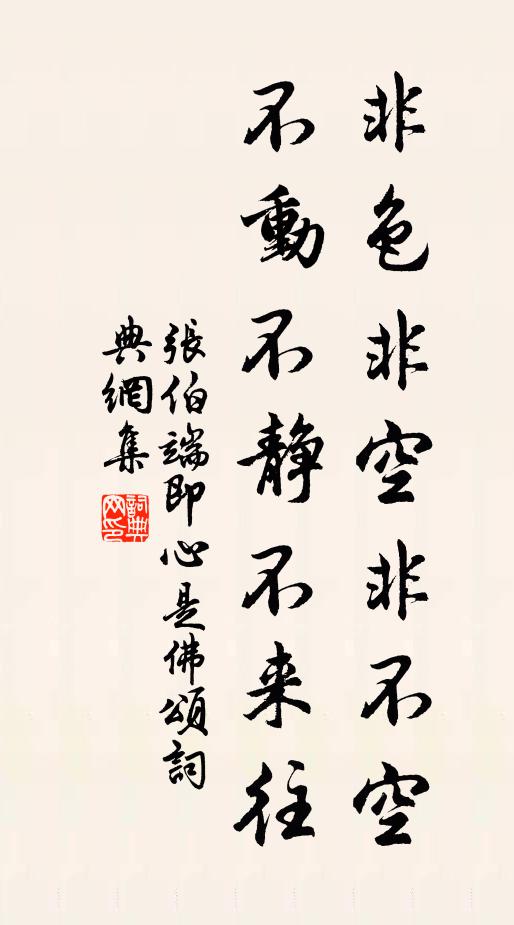 非色非空非不空
不動不静不来往
張伯端即心是佛頌詞
典網集
詞典網印